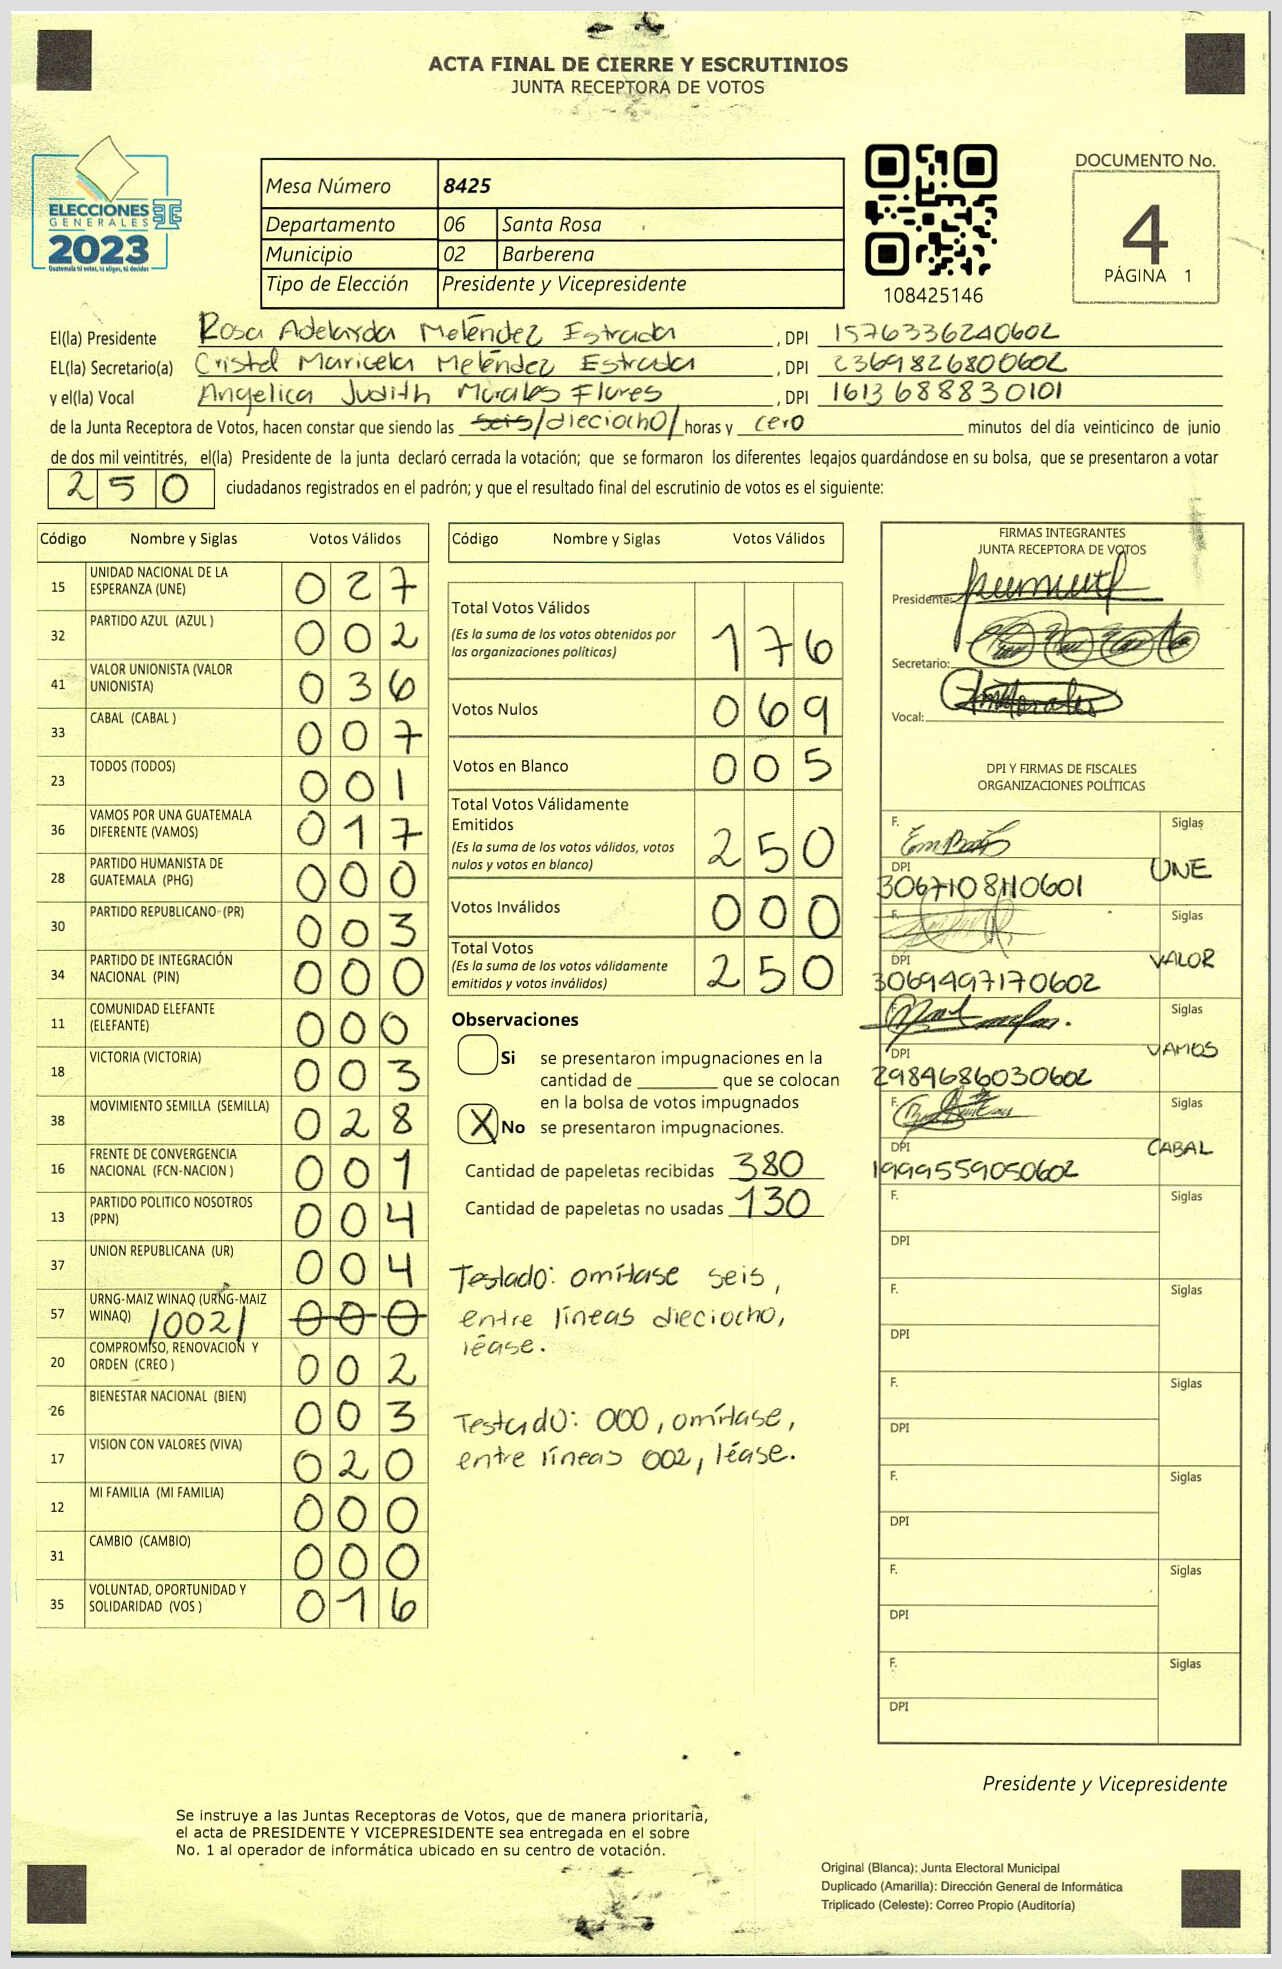 ACTA FINAL DE CIERRE Y ESCRUTINIOS
JUNTA RECEPTORA DE VOTOS
ELECCIONES
GENERALES
2023
Guatemala tú votas, tú eliges, tú decides
Mesa Número 8425
Departamento 06 Santa Rosa
Municipio 02 Barberena
Tipo de Elección Presidente y Vicepresidente
108425146
DOCUMENTO No.
4
PÁGINA 1
El(la) Presidente Rosa Adelarda Meléndez Estrada, DPI 1576336240602
EL(la) Secretario(a) Cristel Maricela Meléndez Estrada, DPI 2369826800602
y el(la) Vocal Angelica Judith Morales Flores, DPI 1613688830101
de la Junta Receptora de Votos, hacen constar que siendo las seis /dieciocho/ horas y cero minutos del día veinticinco de junio
de dos mil veintitrés, el(la) Presidente de la junta declaró cerrada la votación; que se formaron los diferentes legajos guardándose en su bolsa, que se presentaron a votar
250 ciudadanos registrados en el padrón; y que el resultado final del escrutinio de votos es el siguiente:
Código Nombre y Siglas Votos Válidos
15 UNIDAD NACIONAL DE LA ESPERANZA (UNE) 027
32 PARTIDO AZUL (AZUL ) 002
41 VALOR UNIONISTA (VALOR UNIONISTA) 036
33 CABAL (CABAL ) 007
23 TODOS (TODOS) 001
36 VAMOS POR UNA GUATEMALA DIFERENTE (VAMOS) 017
28 PARTIDO HUMANISTA DE GUATEMALA (PHG) 000
30 PARTIDO REPUBLICANO (PR) 003
34 PARTIDO DE INTEGRACIÓN NACIONAL (PIN) 000
11 COMUNIDAD ELEFANTE (ELEFANTE) 000
18 VICTORIA (VICTORIA) 003
38 MOVIMIENTO SEMILLA (SEMILLA) 028
16 FRENTE DE CONVERGENCIA NACIONAL (FCN-NACION ) 001
13 PARTIDO POLITICO NOSOTROS (PPN) 004
37 UNION REPUBLICANA (UR) 004
57 URNG-MAIZ WINAQ (URNG-MAIZ WINAQ) /002/ 000
20 COMPROMISO, RENOVACION Y ORDEN (CREO ) 002
26 BIENESTAR NACIONAL (BIEN) 003
17 VISION CON VALORES (VIVA) 020
12 MI FAMILIA (MI FAMILIA) 000
31 CAMBIO (CAMBIO) 000
35 VOLUNTAD, OPORTUNIDAD Y SOLIDARIDAD (VOS ) 016
Código Nombre y Siglas Votos Válidos
Total Votos Válidos
(Es la suma de los votos obtenidos por las organizaciones políticas) 176
Votos Nulos 069
Votos en Blanco 005
Total Votos Válidamente Emitidos
(Es la suma de los votos válidos, votos nulos y votos en blanco) 250
Votos Inválidos 000
Total Votos
(Es la suma de los votos válidamente emitidos y votos inválidos) 250
Observaciones
Si se presentaron impugnaciones en la
cantidad de ________ que se colocan
en la bolsa de votos impugnados
X No se presentaron impugnaciones.
Cantidad de papeletas recibidas 380
Cantidad de papeletas no usadas 130
Testado: omítase seis,
entre líneas dieciocho,
léase.
Testado: 000, omítase,
entre líneas 002, léase.
FIRMAS INTEGRANTES
JUNTA RECEPTORA DE VOTOS
Presidente:
Secretario:
Vocal:
DPI Y FIRMAS DE FISCALES
ORGANIZACIONES POLÍTICAS
F. Siglas
DPI UNE
3067108110601
F. Siglas
DPI VALOR
3069497170602
F. Siglas
DPI VAMOS
2984686030602
F. Siglas
DPI CABAL
1999559050602
F. Siglas
DPI
F. Siglas
DPI
F. Siglas
DPI
F. Siglas
DPI
F. Siglas
DPI
F. Siglas
DPI
Presidente y Vicepresidente
Se instruye a las Juntas Receptoras de Votos, que de manera prioritaria,
el acta de PRESIDENTE Y VICEPRESIDENTE sea entregada en el sobre
No. 1 al operador de informática ubicado en su centro de votación.
Original (Blanca): Junta Electoral Municipal
Duplicado (Amarilla): Dirección General de Informática
Triplicado (Celeste): Correo Propio (Auditoría)